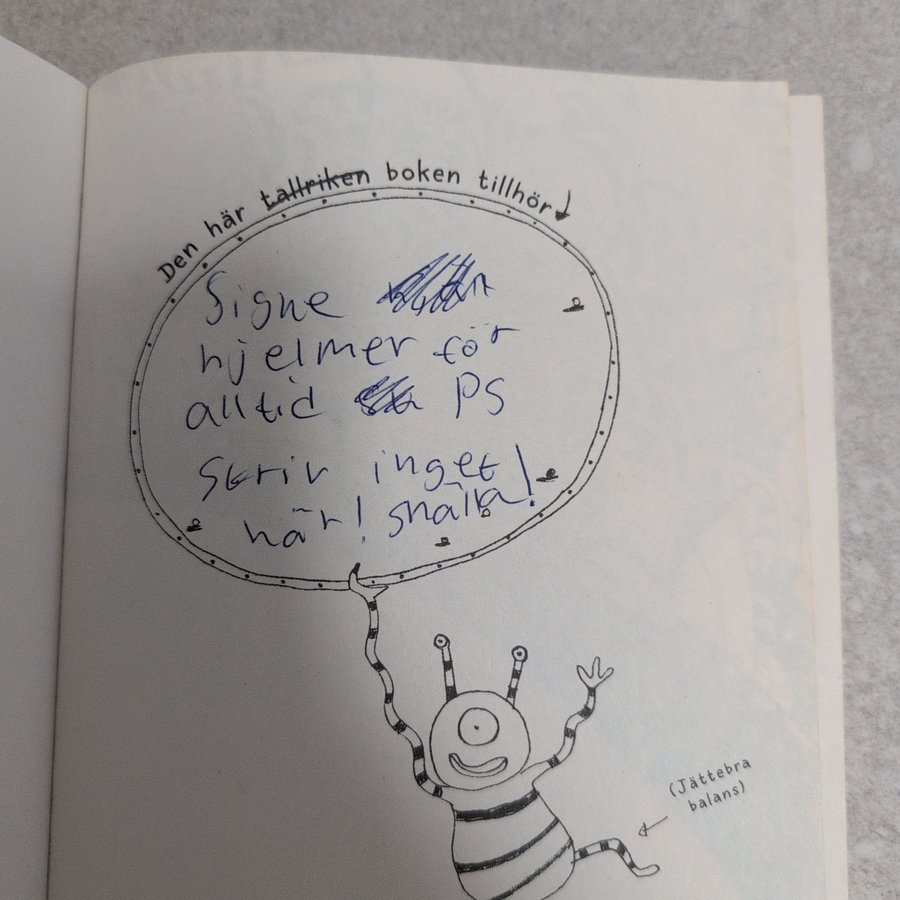 Den här tallriken boken tillhör
Signe
hjelmer för
alltid PS
Skriv inget
här! snälla!
(Jättebra
balans)